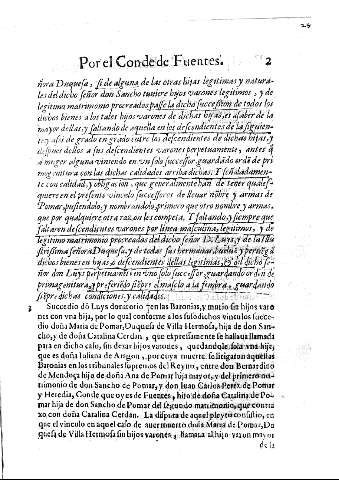 Por el Conde de Fuentes. 2
ñora Duquesa, si de alguna de las otras hijas legitimas y natura-
les del dicho señor don Sancho tuviere hijos varones legitimos, y de
legitimo matrimonio procreados passe la dicha succession de todos los
dichos bienes a los tales hijos varones de dichas hijas, es asaber de la
mayor dellas, y faltando de aquella en los descendientes de la siguien-
te, y assi de grado en grado entre los descendientes de dichas hijas, y
despues dellos a sus descendientes varones perpetuamente, antes q̃
a muger alguna viniendo en vn solo successor, guardãdo ordẽ de pri
mogenitura con las dichas calidades arriba dichas. Y señaladamen-
te con calidad, y obligacion, que generalmente han de tener quales-
quiere en el presente vinculo successores de lleuar nõbre y armas de
Pomar, pusiendolo, y nombrandolo primero que otro nombre, y armas,
que por qualquiere otra razon les competa. Y faltando, y siempre que
faltaren descendientes varones por linea masculina, legitimos, y de
legitimo matrimonio procreados del dicho señor D. Luys, y de la Ilu
strissima señora Duquesa, y de todas sus hermanas, buelua y pertenezcã
dichos bienes en hijas, y descendientes dellas legitimas, y del dicho se-
ñor don Luys perpetuamente en vno solo successor, guardando orden de
primogenitura, y preferido siẽpre el masclo a la fembra, guardando
siẽpre dichas condiciones, y calidades.
3 Sucedió dõ Luys donatorio en las Baronias, y murio sin hijos varo
nes con vna hija, por lo qual conforme a los susodichos vinculos succe-
dio doña Maria de Pomar, Duquesa de Villa Hermosa, hija de don San-
cho, y de doña Catalina Cerdan, y que expressamente se hallaua llamada
para en dicho caso, sin dexar hijos varones, quedandole sola vna hija,
que es doña Iuliana de Aragon, por cuya muerte se litigaron aquellas
Baronias en los tribunales supremos del Reyno, entre don Bernardino
de Mendoça hijo de doña Ana de Pomar hija mayor, y del primero ma-
trimonio de don Sancho de Pomar, y don Iuan Carlos Perez de Pomar
y Heredia, Conde que oy es de Fuentes, hijo de doña Catalina de Po-
mar hija de don Sancho de Pomar del segundo matrimonio, que contra
xo con doña Catalina Cerdan. La disputa de aquel pleyto consistio, en
que el vinculo en aquel caso de auer muerto doña Maria de Pomar, Du
quesa de Villa Hermosa sin hijos varones, llamaua al hijo varon mayor
de la